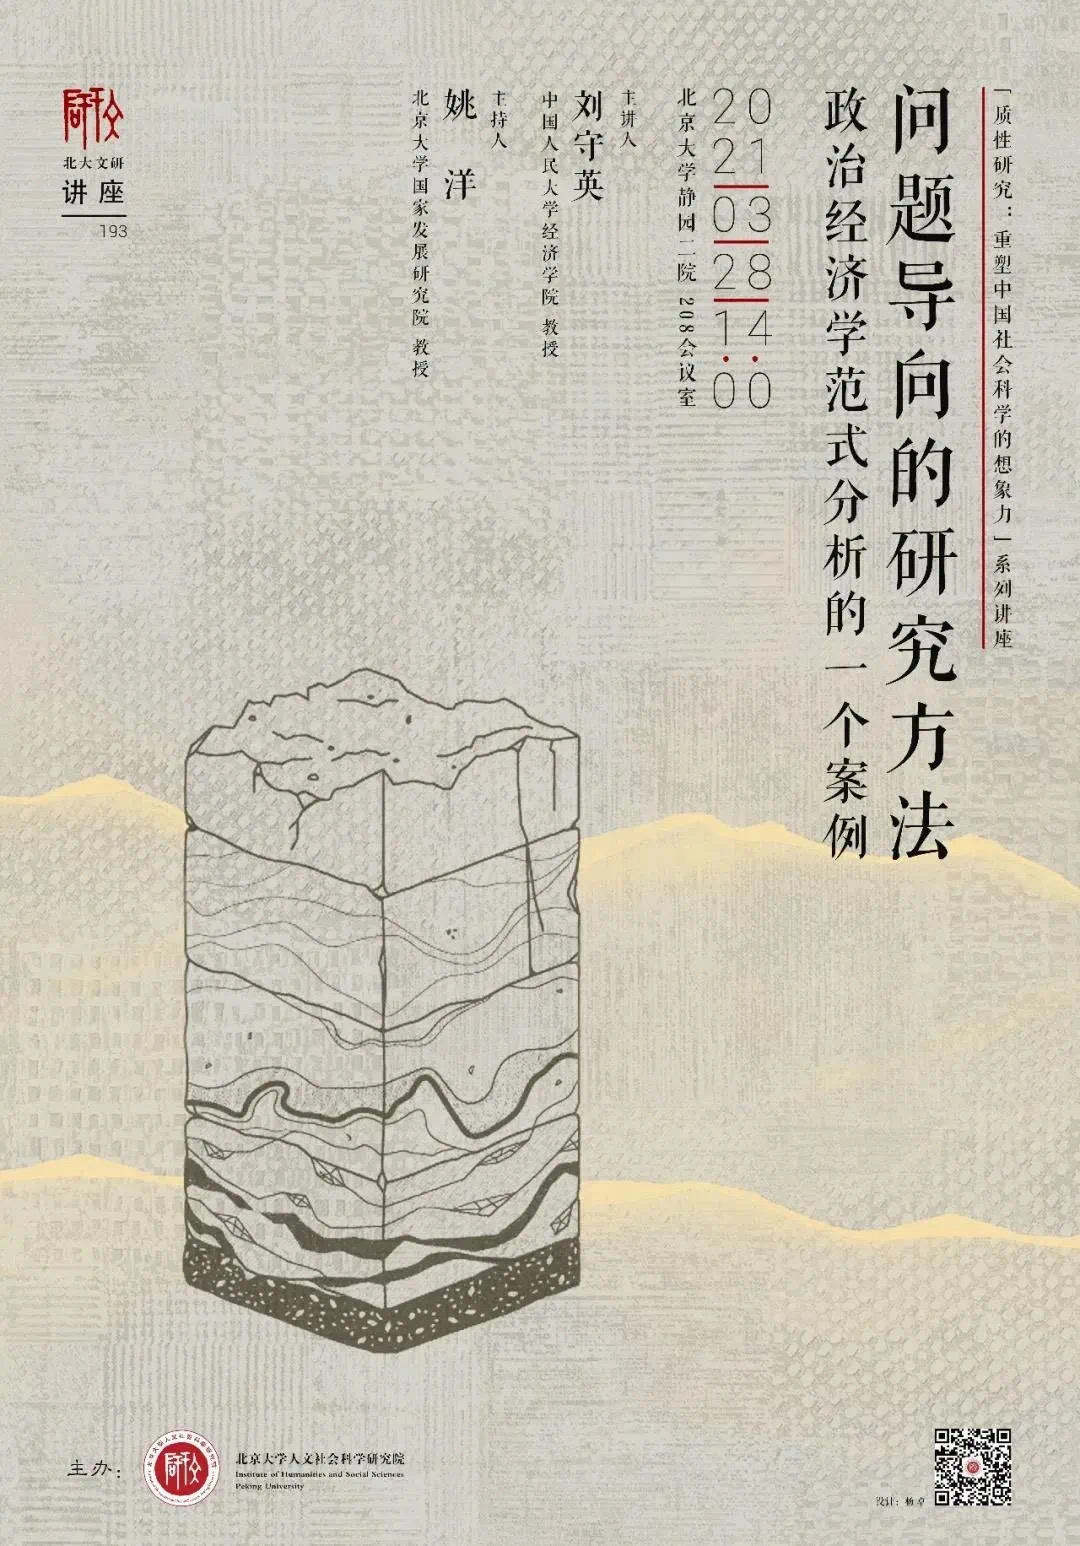 「质性研究：重塑中国社会科学的想象力」系列讲座
问题导向的研究方法
政治经济学范式分析的一个案例
20
21
03
28
14:00
北京大学静园二院 208会议室
主讲人
刘守英
中国人民大学经济学院 教授
主持人
姚 洋
北京大学国家发展研究院 教授
北大文研
讲座
193
主办：
北京大学人文社会科学研究院
Institute of Humanities and Social Sciences
Peking University
设计：杨卓